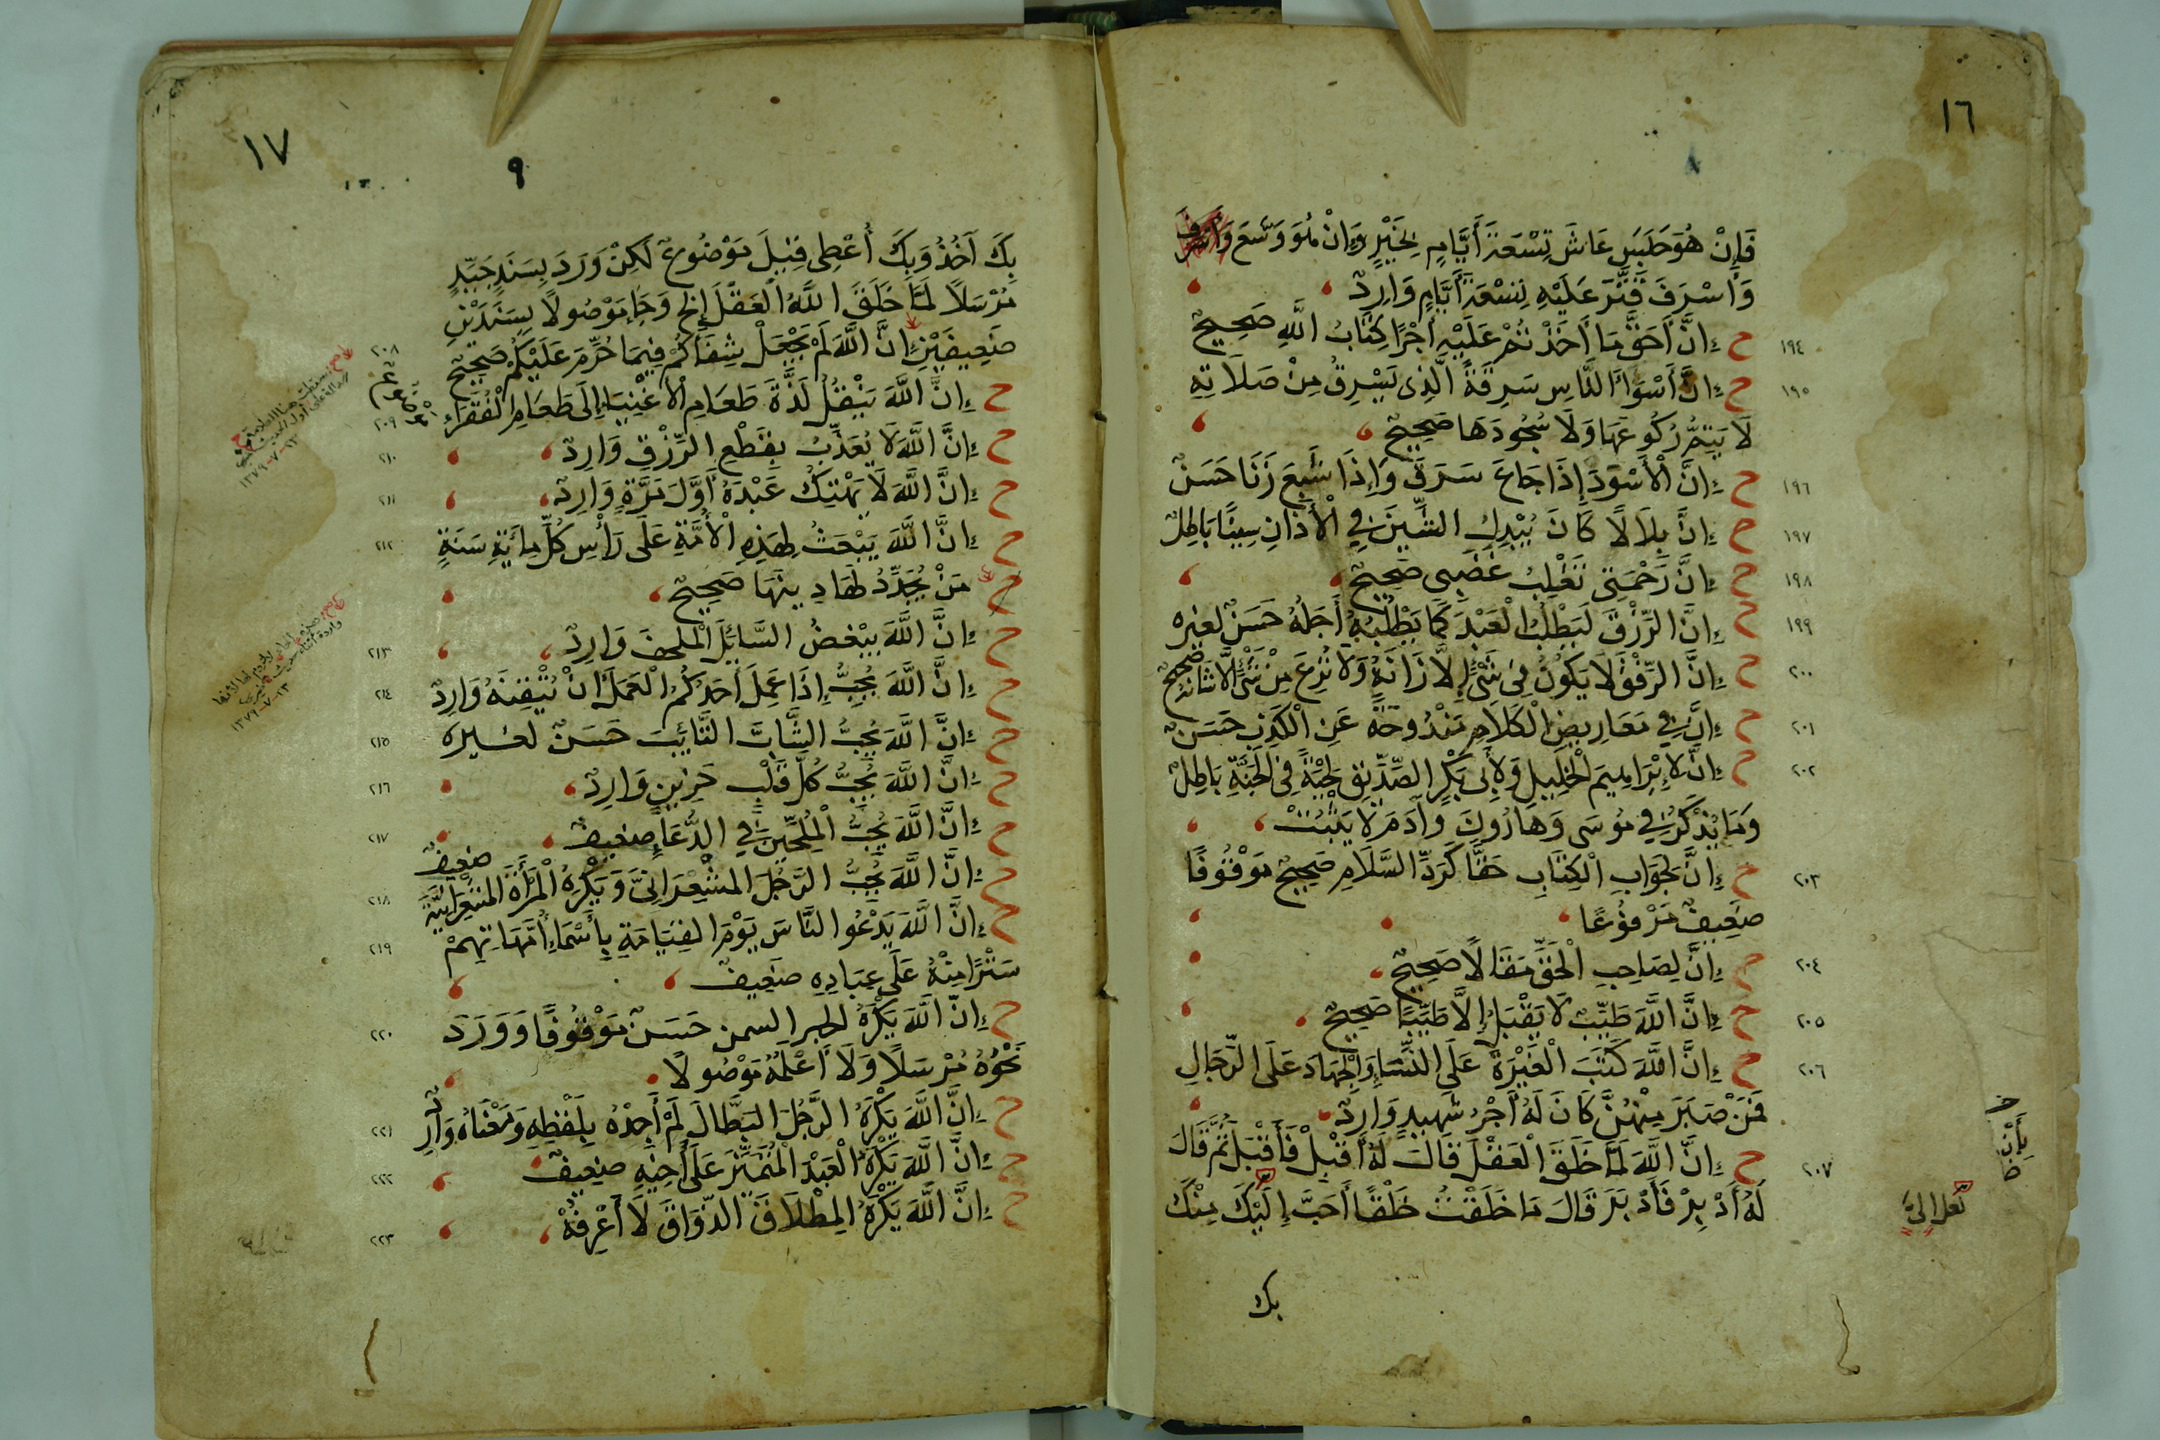 ١٦
فَإِنْ هُوَ حَبَسَ عَاشَ تِسْعَةَ أَيَّامٍ بِخَيْرٍ وَإِنْ هُوَ وَسَّعَ وَأَسْرَفَ
وَأَسْرَفَ قَتَّرَ عَلَيْهِ تِسْعَةَ أَيَّامٍ وَارِدٌ
١٩٤ ح إِنَّ أَحَقَّ مَا أَخَذْتُمْ عَلَيْهِ أَجْرًا كِتَابُ اللَّهِ صَحِيحٌ
١٩٥ ح إِنَّ أَسْوَأَ النَّاسِ سَرِقَةً الَّذِى يَسْرِقُ مِنْ صَلَاتِهِ
لَا يُتِمُّ رُكُوعَهَا وَلَا سُجُودَهَا صَحِيحٌ
١٩٦ ح إِنَّ الْأَسْوَدَ إِذَا جَاعَ سَرَقَ وَإِذَا شَبِعَ زَنَا حَسَنٌ
١٩٧ ح إِنَّ بِلَالًا كَانَ يُبْدِلُ الشِّينَ فِي الْأَذَانِ سِينًا بَاطِلٌ
١٩٨ ح إِنَّ رَحْمَتِى تَغْلِبُ غَضَبِى صَحِيحٌ
١٩٩ ح إِنَّ الرِّزْقَ لَيَطْلُبُ الْعَبْدَ كَمَا يَطْلُبُهُ أَجَلُهُ حَسَنٌ لغيره
٢٠٠ ح إِنَّ الرِّفْقَ لَا يَكُونُ فِى شَىْءٍ إِلَّا زَانَهُ وَلَا نُزِعَ مِنْ شَىْءٍ إِلَّا شَانَهُ صَحِيحٌ
٢٠١ ح إِنَّ فِي مَعَارِيضِ الْكَلَامِ مَنْدُوحَةً عَنِ الْكَذِبِ حَسَنٌ
٢٠٢ ح إِنَّ لِإِبْرَاهِيمَ الْخَلِيلِ وَلِأَبِى بَكْرٍ الصِّدِّيقِ لِحْيَةً فِى الْجَنَّةِ بَاطِلٌ
وَمَا يُذْكَرُ فِي مُوسَى وَهَارُونَ وَآدَمَ لَا يَثْبُتُ
٢٠٣ ح إِنَّ لِجَوَابِ الْكِتَابِ حَقًّا كَرَدِّ السَّلَامِ صَحِيحٌ مَوْقُوفًا
ضَعِيفٌ مَرْفُوعًا
٢٠٤ ح إِنَّ لِصَاحِبِ الْحَقِّ مَقَالًا صَحِيحٌ
٢٠٥ ح إِنَّ اللَّهَ طَيِّبٌ لَا يَقْبَلُ إِلَّا طَيِّبًا صَحِيحٌ
٢٠٦ ح إِنَّ اللَّهَ كَتَبَ الْغَيْرَةَ عَلَى النِّسَاءِ وَالْجِهَادَ عَلَى الرِّجَالِ
فَمَنْ صَبَرَ مِنْهُنَّ كَانَ لَهُ أَجْرُ شَهِيدٍ وَارِدٌ
٢٠٧ ح إِنَّ اللَّهَ لَمَّا خَلَقَ الْعَقْلَ قَالَ لَهُ أَقْبِلْ فَأَقْبَلَ ثُمَّ قَالَ
لَهُ أَدْبِرْ فَأَدْبَرَ قَالَ مَا خَلَقْتُ خَلْقًا أَحَبَّ إِلَيْكَ مِنْكَ
بك
١٧
٩
بِكَ آخُذُ وَبِكَ أُعْطِى قِيلَ مَوْضُوعٌ لَكِنْ وَرَدَ بِسَنَدٍ جَيِّدٍ
مُرْسَلًا لَمَّا خَلَقَ اللَّهُ الْعَقْلَ إِلخ وَجَاءَ مَوْصُولًا بِسَنَدَيْنِ
٢٠٨ ضَعِيفَيْنِ إِنَّ اللَّهَ لَمْ يَجْعَلْ شِفَاكُمْ فِيمَا حُرِّمَ عَلَيْكُمْ صَحِيحٌ
٢٠٩ ح إِنَّ اللَّهَ يَنْقُلُ لَذَّةَ طَعَامِ الْأَغْنِيَاءِ إِلَى طَعَامِ الْفُقَرَاءِ
٢١٠ ح إِنَّ اللَّهَ لَا يُعَذِّبُ بِقَطْعِ الرِّزْقِ وَارِدٌ
٢١١ ح إِنَّ اللَّهَ لَا يَهْتِكُ عَبْدَهُ أَوَّلَ مَرَّةٍ وَارِدٌ
٢١٢ ح إِنَّ اللَّهَ يَبْعَثُ لِهَذِهِ الْأُمَّةِ عَلَى رَأْسِ كُلِّ مِائَةِ سَنَةٍ
ح مَنْ يُجَدِّدُ لَهَا دِينَهَا صَحِيحٌ
٢١٣ ح إِنَّ اللَّهَ يَبْغَضُ السَّائِلَ الْمُلْحِفَ وَارِدٌ
٢١٤ ح إِنَّ اللَّهَ يُحِبُّ إِذَا عَمِلَ أَحَدُكُمُ الْعَمَلَ أَنْ يُتْقِنَهُ وَارِدٌ
٢١٥ ح إِنَّ اللَّهَ يُحِبُّ الشَّابَّ التَّائِبَ حَسَنٌ لغيره
٢١٦ ح إِنَّ اللَّهَ يُحِبُّ كُلَّ قَلْبٍ حَزِينٍ وَارِدٌ
٢١٧ ح إِنَّ اللَّهَ يُحِبُّ الْمُلِحِّينَ فِي الدُّعَاءِ ضَعِيفٌ
٢١٨ ح إِنَّ اللَّهَ يُحِبُّ الرَّجُلَ الْمَشْعَرَانِىَّ وَيَكْرَهُ الْمَرْأَةَ الْمَشْعَرَانِيَّةَ ضعيف
٢١٩ ح إِنَّ اللَّهَ يَدْعُوا النَّاسَ يَوْمَ الْقِيَامَةِ بِأَسْمَاءِ أُمَّهَاتِهِمْ
سَتْرًا مِنْهُ عَلَى عِبَادِهِ ضَعِيفٌ
٢٢٠ ح إِنَّ اللَّهَ يَكْرَهُ الحبر السمين حَسَنٌ مَوْقُوفًا وَوَرَدَ
نَحْوُهُ مُرْسَلًا وَلَا أَعْلَمُهُ مَوْصُولًا
٢٢١ ح إِنَّ اللَّهَ يَكْرَهُ الرَّجُلَ الْبَطَّالَ لَمْ أَجِدْهُ بِلَفْظِهِ وَمَعْنَاهُ وَارِدٌ
٢٢٢ ح إِنَّ اللَّهَ يَكْرَهُ الْعَبْدَ الْمُتَمَيِّزَ عَلَى أَخِيهِ ضَعِيفٌ
٢٢٣ ح إِنَّ اللَّهَ يَكْرَهُ الْمِطْلَاقَ الذَّوَّاقَ لَا أَعْرِفُهُ